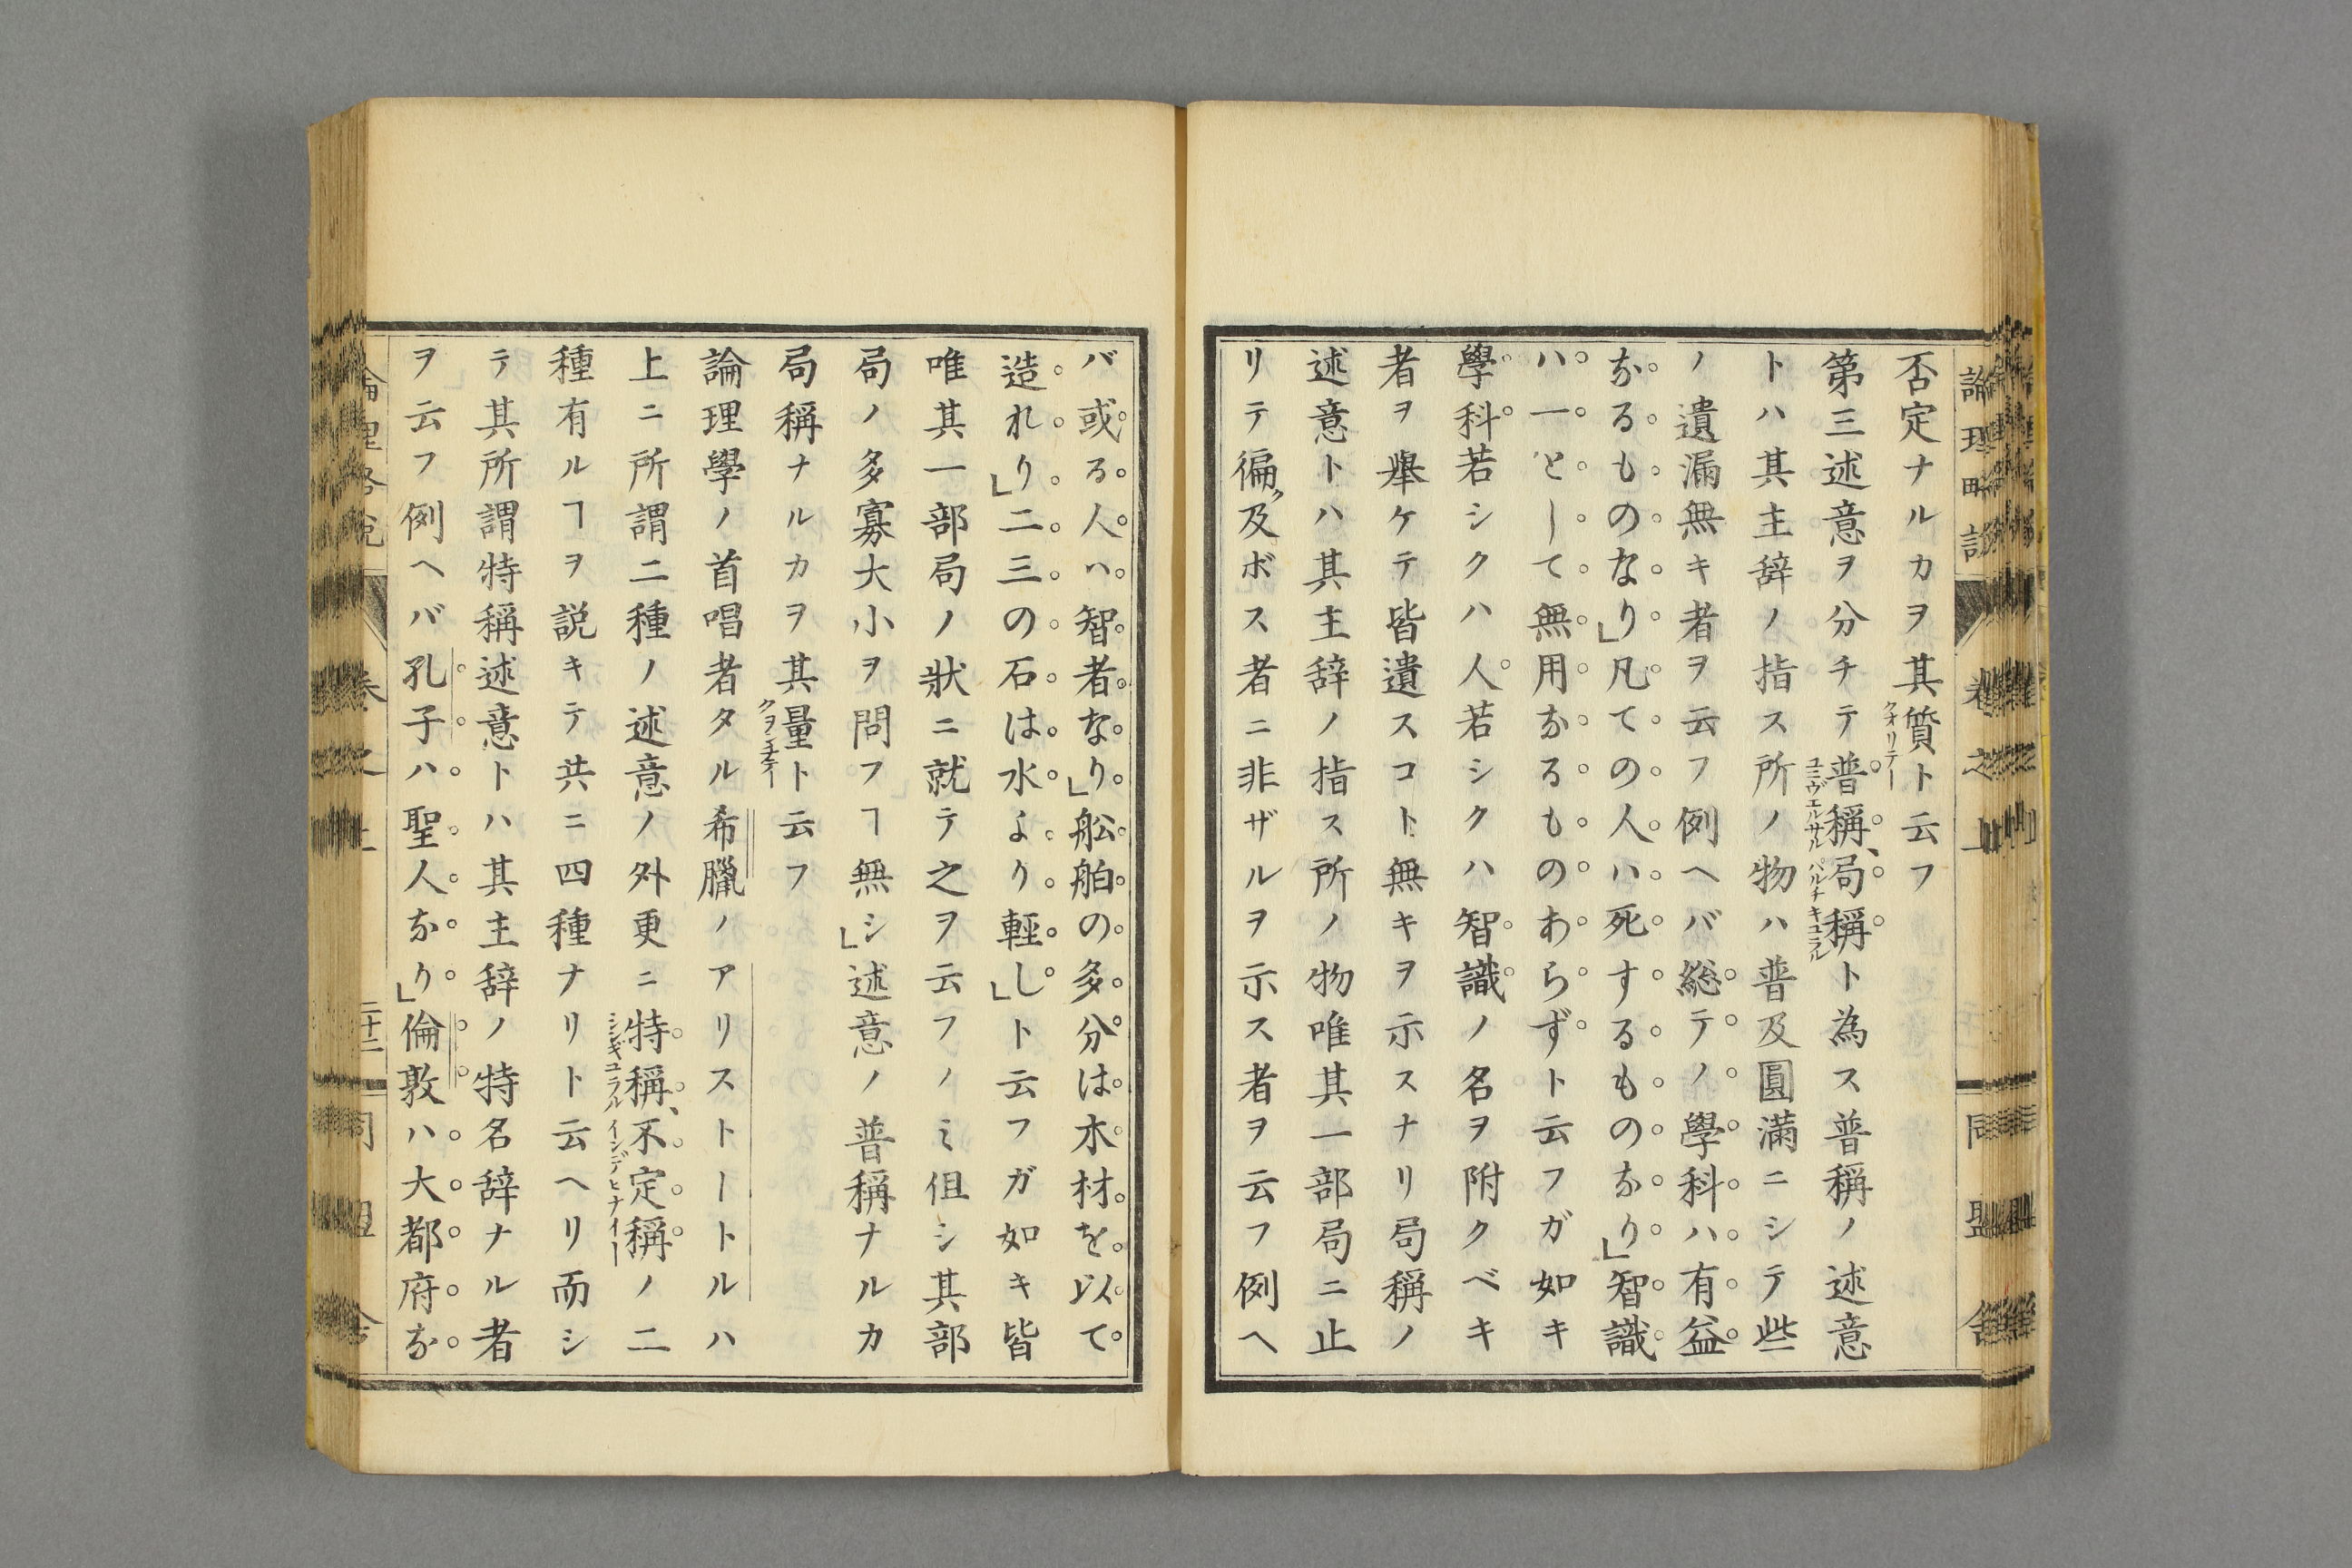 否定ナルカヲ其質ト云フ
クオリテー
第三述意ヲ分チテ普稱、局稱ト為ス普稱ノ述意
ユニヴエルサル パルチキユラル
トハ其主辞ノ指ス所ノ物ハ普及圓滿ニシテ些
ノ遺漏無キ者ヲ云フ例ヘバ総テノ學科ハ有益
なるものなり」凡ての人ハ死するものなり」智識
ハ一として無用なるものあらずト云フガ如キ
學科若シクハ人若シクハ智識ノ名ヲ附クベキ
者ヲ舉ケテ皆遺スコト無キヲ示スナリ局稱ノ
述意トハ其主辞ノ指ス所ノ物唯其一部局ニ止
リテ徧ク及ボス者ニ非ザルヲ示ス者ヲ云フ例ヘ
バ或る人ハ智者なり」舩舶の多分は木材を以て
造れり」二三の石は水より輕し」ト云フガ如キ皆
唯其一部局ノ狀ニ就テ之ヲ云フノミ但シ其部
局ノ多寡大小ヲ問フヿ無シ」述意ノ普稱ナルカ
局稱ナルカヲ其量ト云フ
論理學ノ首唱者タル希臘ノアリストートルハ
上ニ所謂二種ノ述意ノ外更ニ特稱、不定稱ノ二
シンギユラル インデヒナイー
種有ルヿヲ説キテ共ニ四種ナリト云ヘリ而シ
テ其所謂特稱述意トハ其主辞ノ特名辞ナル者
ヲ云フ例ヘバ孔子ハ聖人なり」倫敦ハ大都府な
論理略說
卷之上
二十二
同盟舍